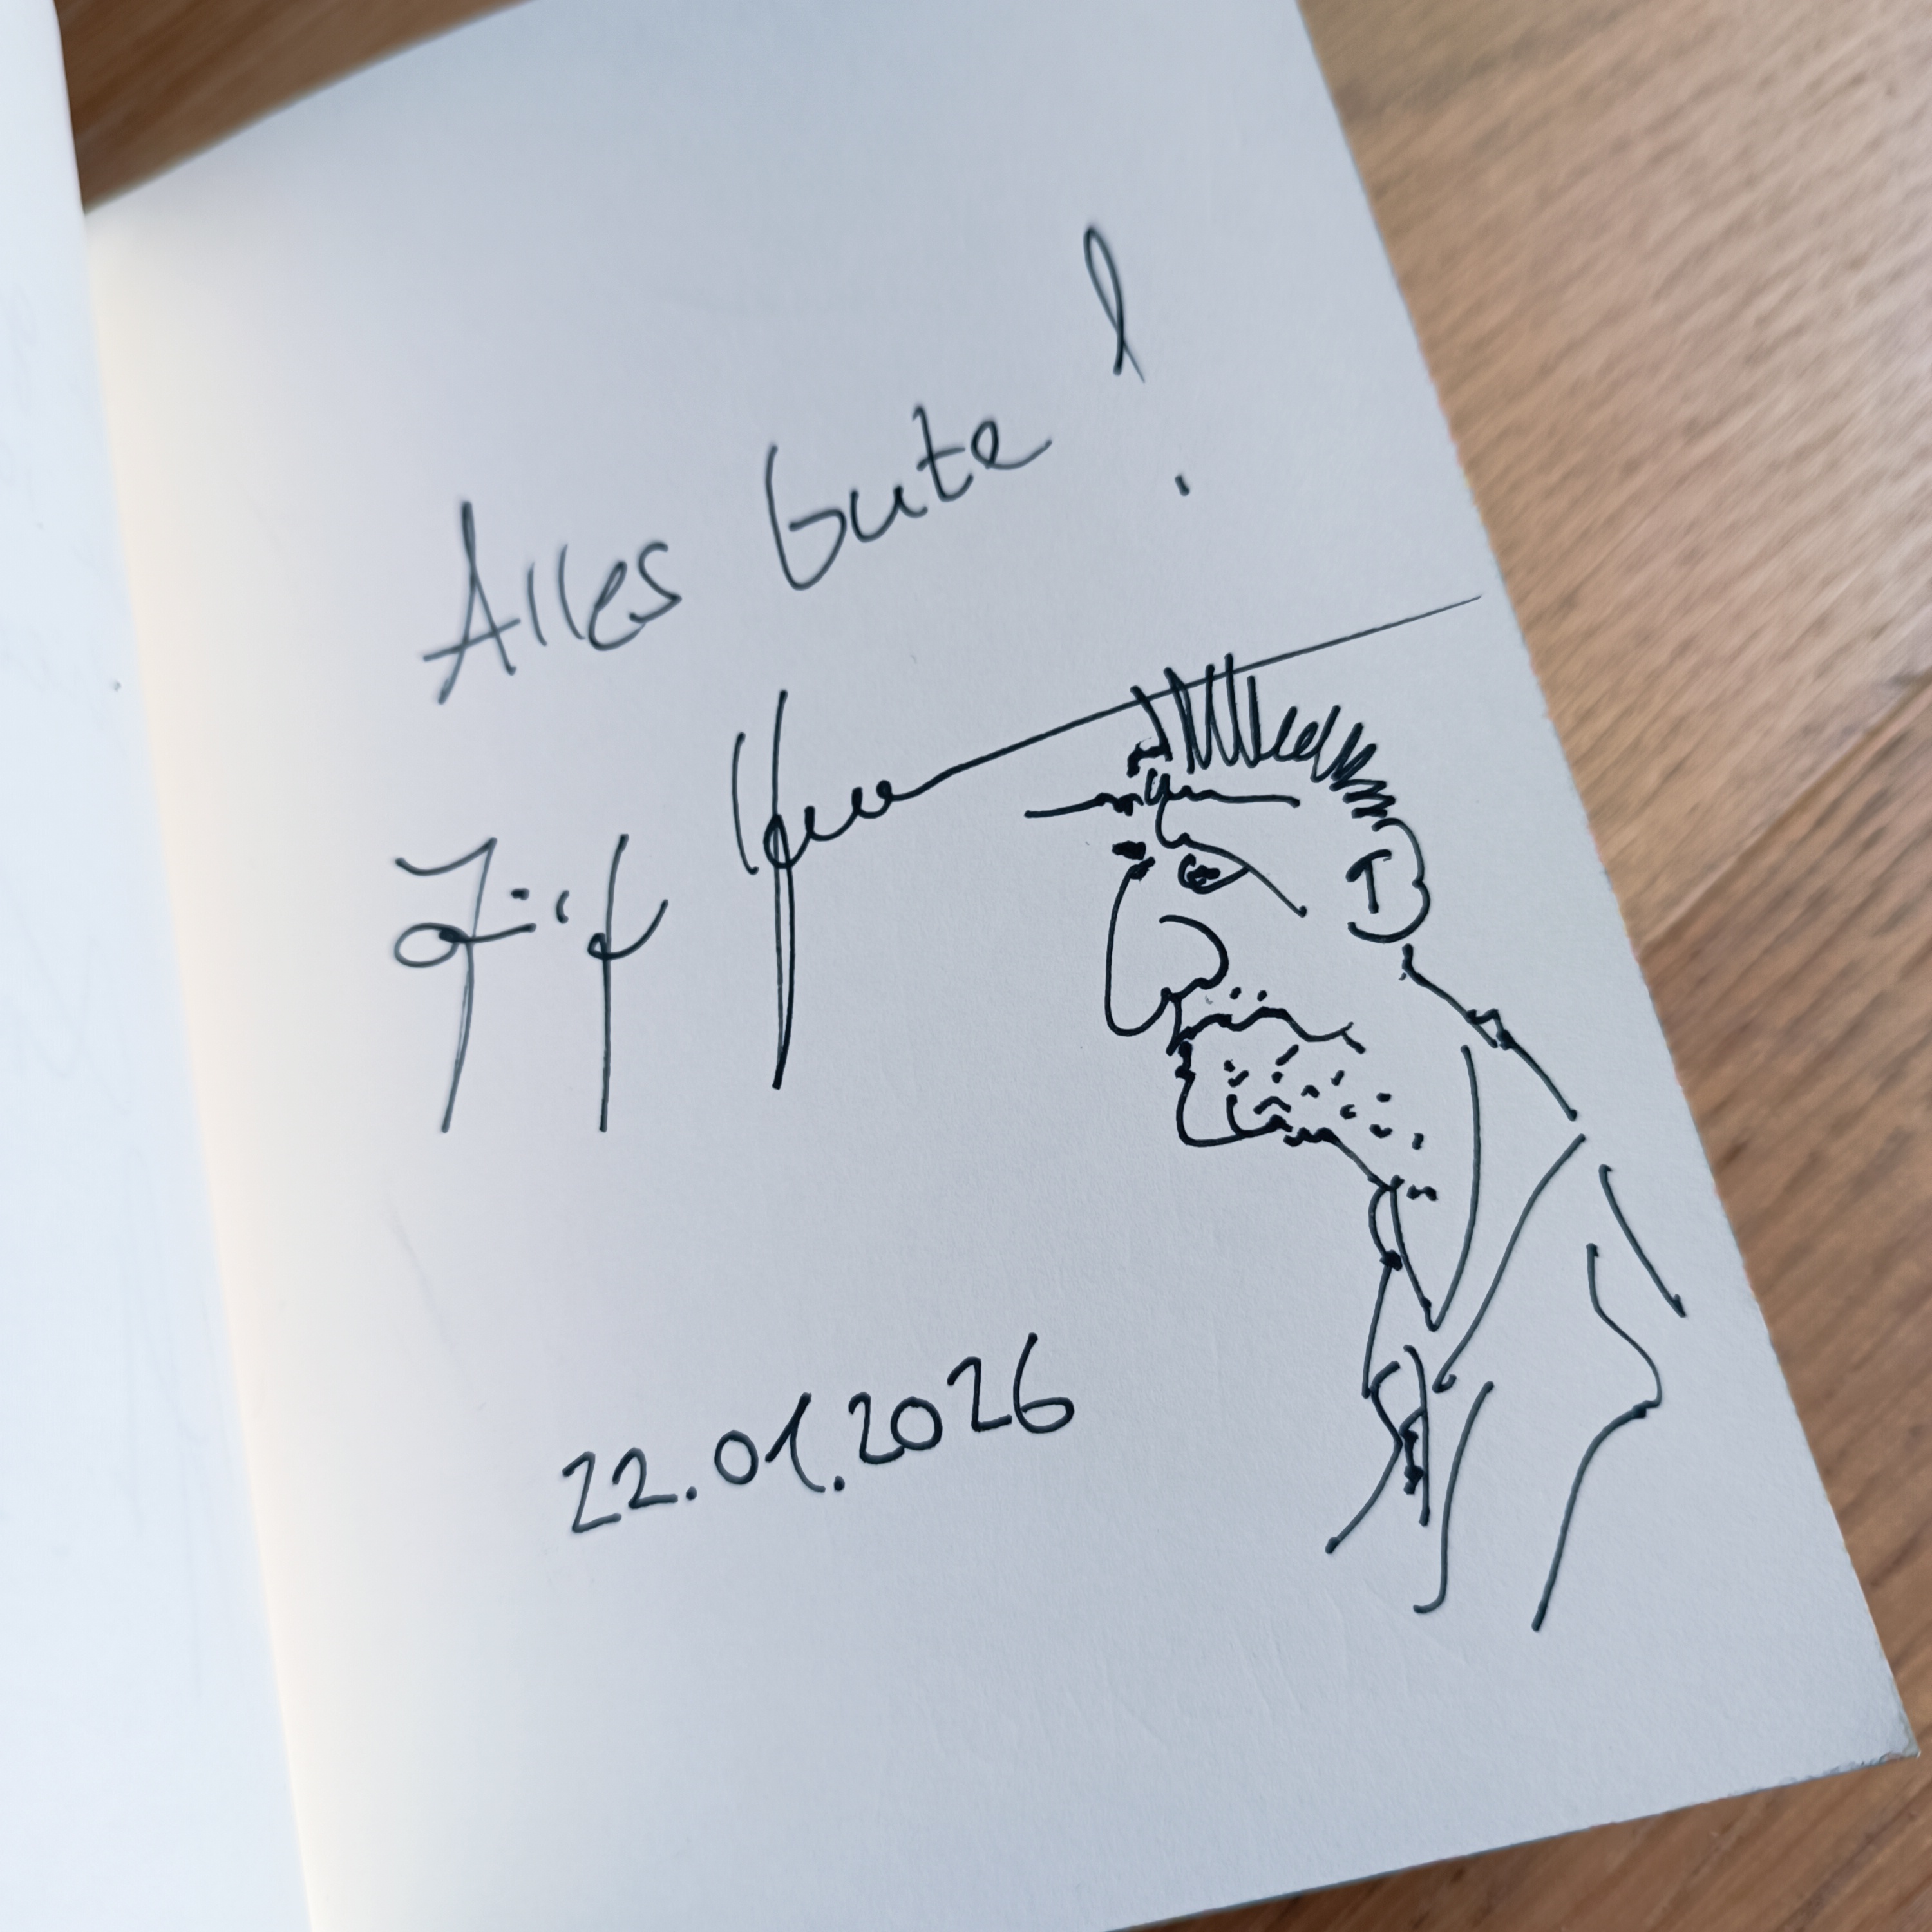 Alles Gute!
22.01.2026